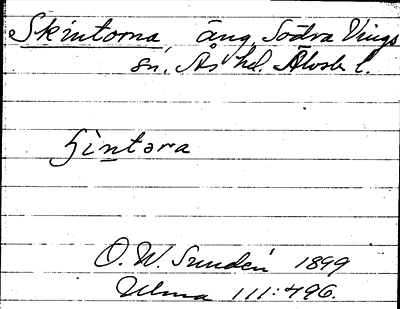 Skintorna, äng, Södra Vings
sn, Ås hd. Älvsb l.
ɧintəra
O. W. Sundén 1899
Ulma 111:496.